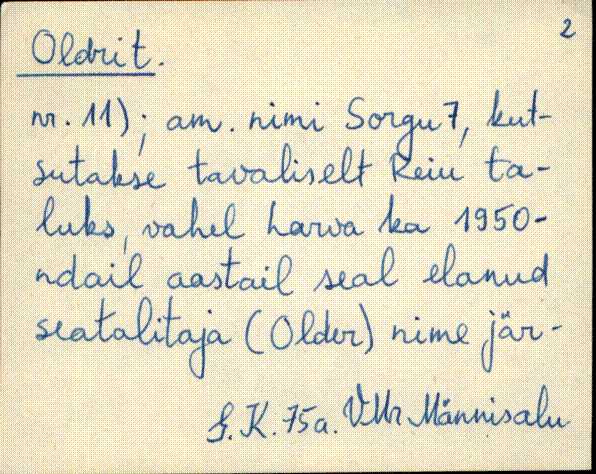 2
Oldrit.
nr. 11); am. nimi Sorgu 7, kut-
sutakse tavaliselt Reiu ta-
luks, vahel harva ka 1950-
ndail aastail seal elanud
seatalitaja (Older) nime jär-
S.K. 75a. VMr Männisalu